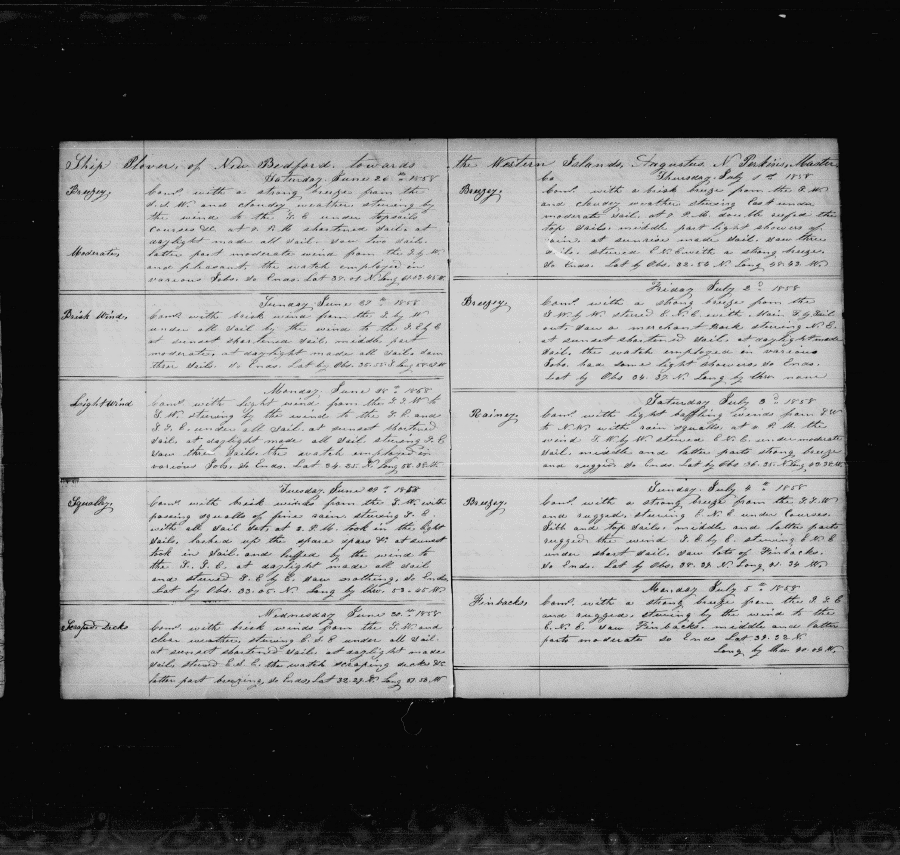 Ship Plover, of New Bedford, towards
Saturday June 26th 1858
Breezy, Coms with a strong breeze from the
S.S.W. and cloudy weather steering by
the wind to the S.E. under topsails
courses &c. at 7. P.M shortened sail, at
daylight made all sail. saw two sail.
Moderate, latter part moderate wind from the S. by W.
and pleasant, the watch employed in
various Jobs. So Ends. Lat
Sunday June 27th 1858
Brisk Winds, Coms. with brisk wind from the S. by W
under all sail by the wind to the S.E by E
at sunset shortened sail, middle part
moderate, at daylight made all sail, saw
three sails. So Ends. Lat by Obs. 35.55 Long
Monday June 28th 1858
Light Wind Coms. with light wind from the S.S.W. to
S.W. steering by the wind to the S.E. and
S.S.E. under all sail. at sunset shortened
sail. at daylight made all sail steering S.E
saw three sails, the watch employed in
various Jobs. So Ends. Lat 34.25. N. Long 55.38. W.
Tuesday, June 29th 1858
Squally, Coms. with brisk winds from the S.W. with
passing squalls of fine rain, steering S.E.
with all sail set, at 2. P.M. took in the light
sails, lashed up the spare spars &c at sunset
took in sail. and luffed by the wind to
the S.S.E. at daylight made all sail
and steered S.E by E. saw nothing, So Ends
Lat by Obs. 33.05. N. Long by Chro. 53.45 W
Wednesday June 30th 1858
Scraped Decks Coms. with brisk winds from the S.W. and
clear weather, steering E.S.E. under all sail
at sunset shortened sail. at daylight made
sail. steered E.S.E. the watch scraping decks &c
latter part breezing, So Ends, Lat 32.29. N. Long 51.58. W
the Western Islands, Augustus N Perkins, Master
Co Thursday, July 1st 1858
Breezy. Coms. with a brisk breeze from the S.W
and cloudy weather steering East under
moderate sail. at 7 P.M. double reefed the
top sails. middle part light showers of
rain, at sunrise made sail. saw three
sails, steered E.N.E with a strong breeze.
So Ends. Lat by Obs. 32.54. N. Long 48.43. W.
Friday July 2d 1858
Breezy. Coms. with a strong breeze from the
S.W. by W. steered E.N.E. with Main T.G. sail
out. saw a merchant Bark steering N.E.
at sunset shortened sail. at daylight made
sail. the watch employed in various
Jobs. had some light showers. So Ends.
Lat by Obs 34.27. N. Long by Chro. none
Saturday July 3d 1858
Rainy. Coms. with light baffling winds from S.W
to N.W. with rain squalls. at 4 P.M. the
wind S.W. by W. steered E.N.E. under moderate
sail. middle and latter parts strong breeze
and rugged. So Ends. Lat by Obs. 36.35. N Long
Sunday, July 4th 1858
Breezy Coms. with a strong breeze from the S.S.W
and rugged, steering E.N.E under Courses.
Jibb and top sails. middle and latter parts
rugged. the wind S.E. by E. steering E.N.E
under short sail. saw lots of Finbacks.
So Ends. Lat by Obs. 38.27. N. Long 41.34 W.
Monday July 5th 1858
Finbacks, Coms. with a strong breeze from the S.S.E
and rugged. steering by the wind to the
E.N.E. saw Finbacks. middle and latter
parts moderate So Ends Lat 39.22 N
Long by Chro 40.08. W.